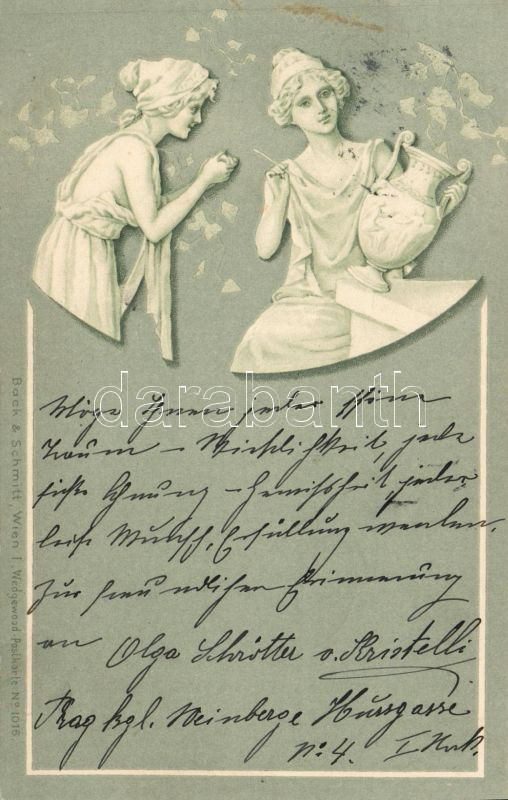 Möge Ihnen jeder schöne
Traum – Wirklichkeit, jede
süße Ahnung – Gewißheit, jeder
leise Wunsch, Erfüllung werden.
Zur freundlichen Erinnerung
an Olga Schrötter v. Kristelli
Prag kgl. Weinberge Hussgasse
No. 4. I.
Back & Schmitt, Wien I. Wedgewood Postkarte No 1016.
darabanth